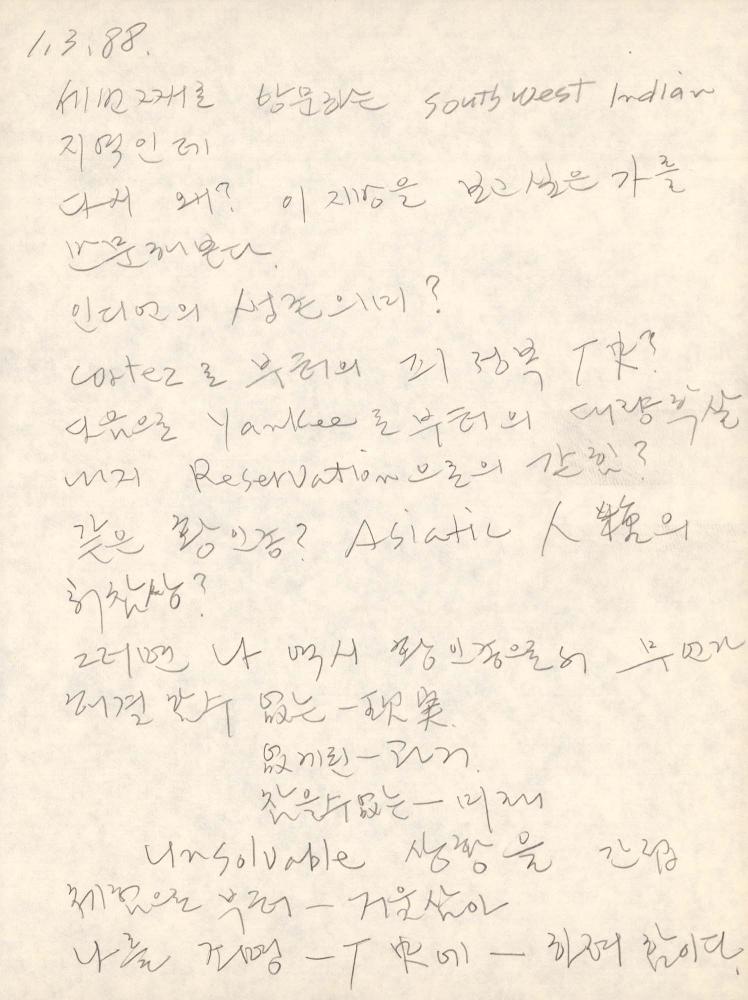 1.3.88.
세번째로 방문하는 southwest Indian
지역인데
다시 왜? 이 지방을 보고 싶은 가를
반문해 본다.
인디언의 생존의미?
Cortez로 부터의 피 정복
다음으로 Yankee로 부터의 대량학살
내지 Reservation으로의 갇힘?
같은 황인종? Asiatic 人種의
그러면 나 역시 황인종으로서 무언가
해결 할수 없는 - 現実.
없게된 - 과거.
찾을수없는 - 미래
unsolvable 상황을 간접
체험으로 부터 - 거울삼아
나를 조명 - 에 - 하려 함이다.